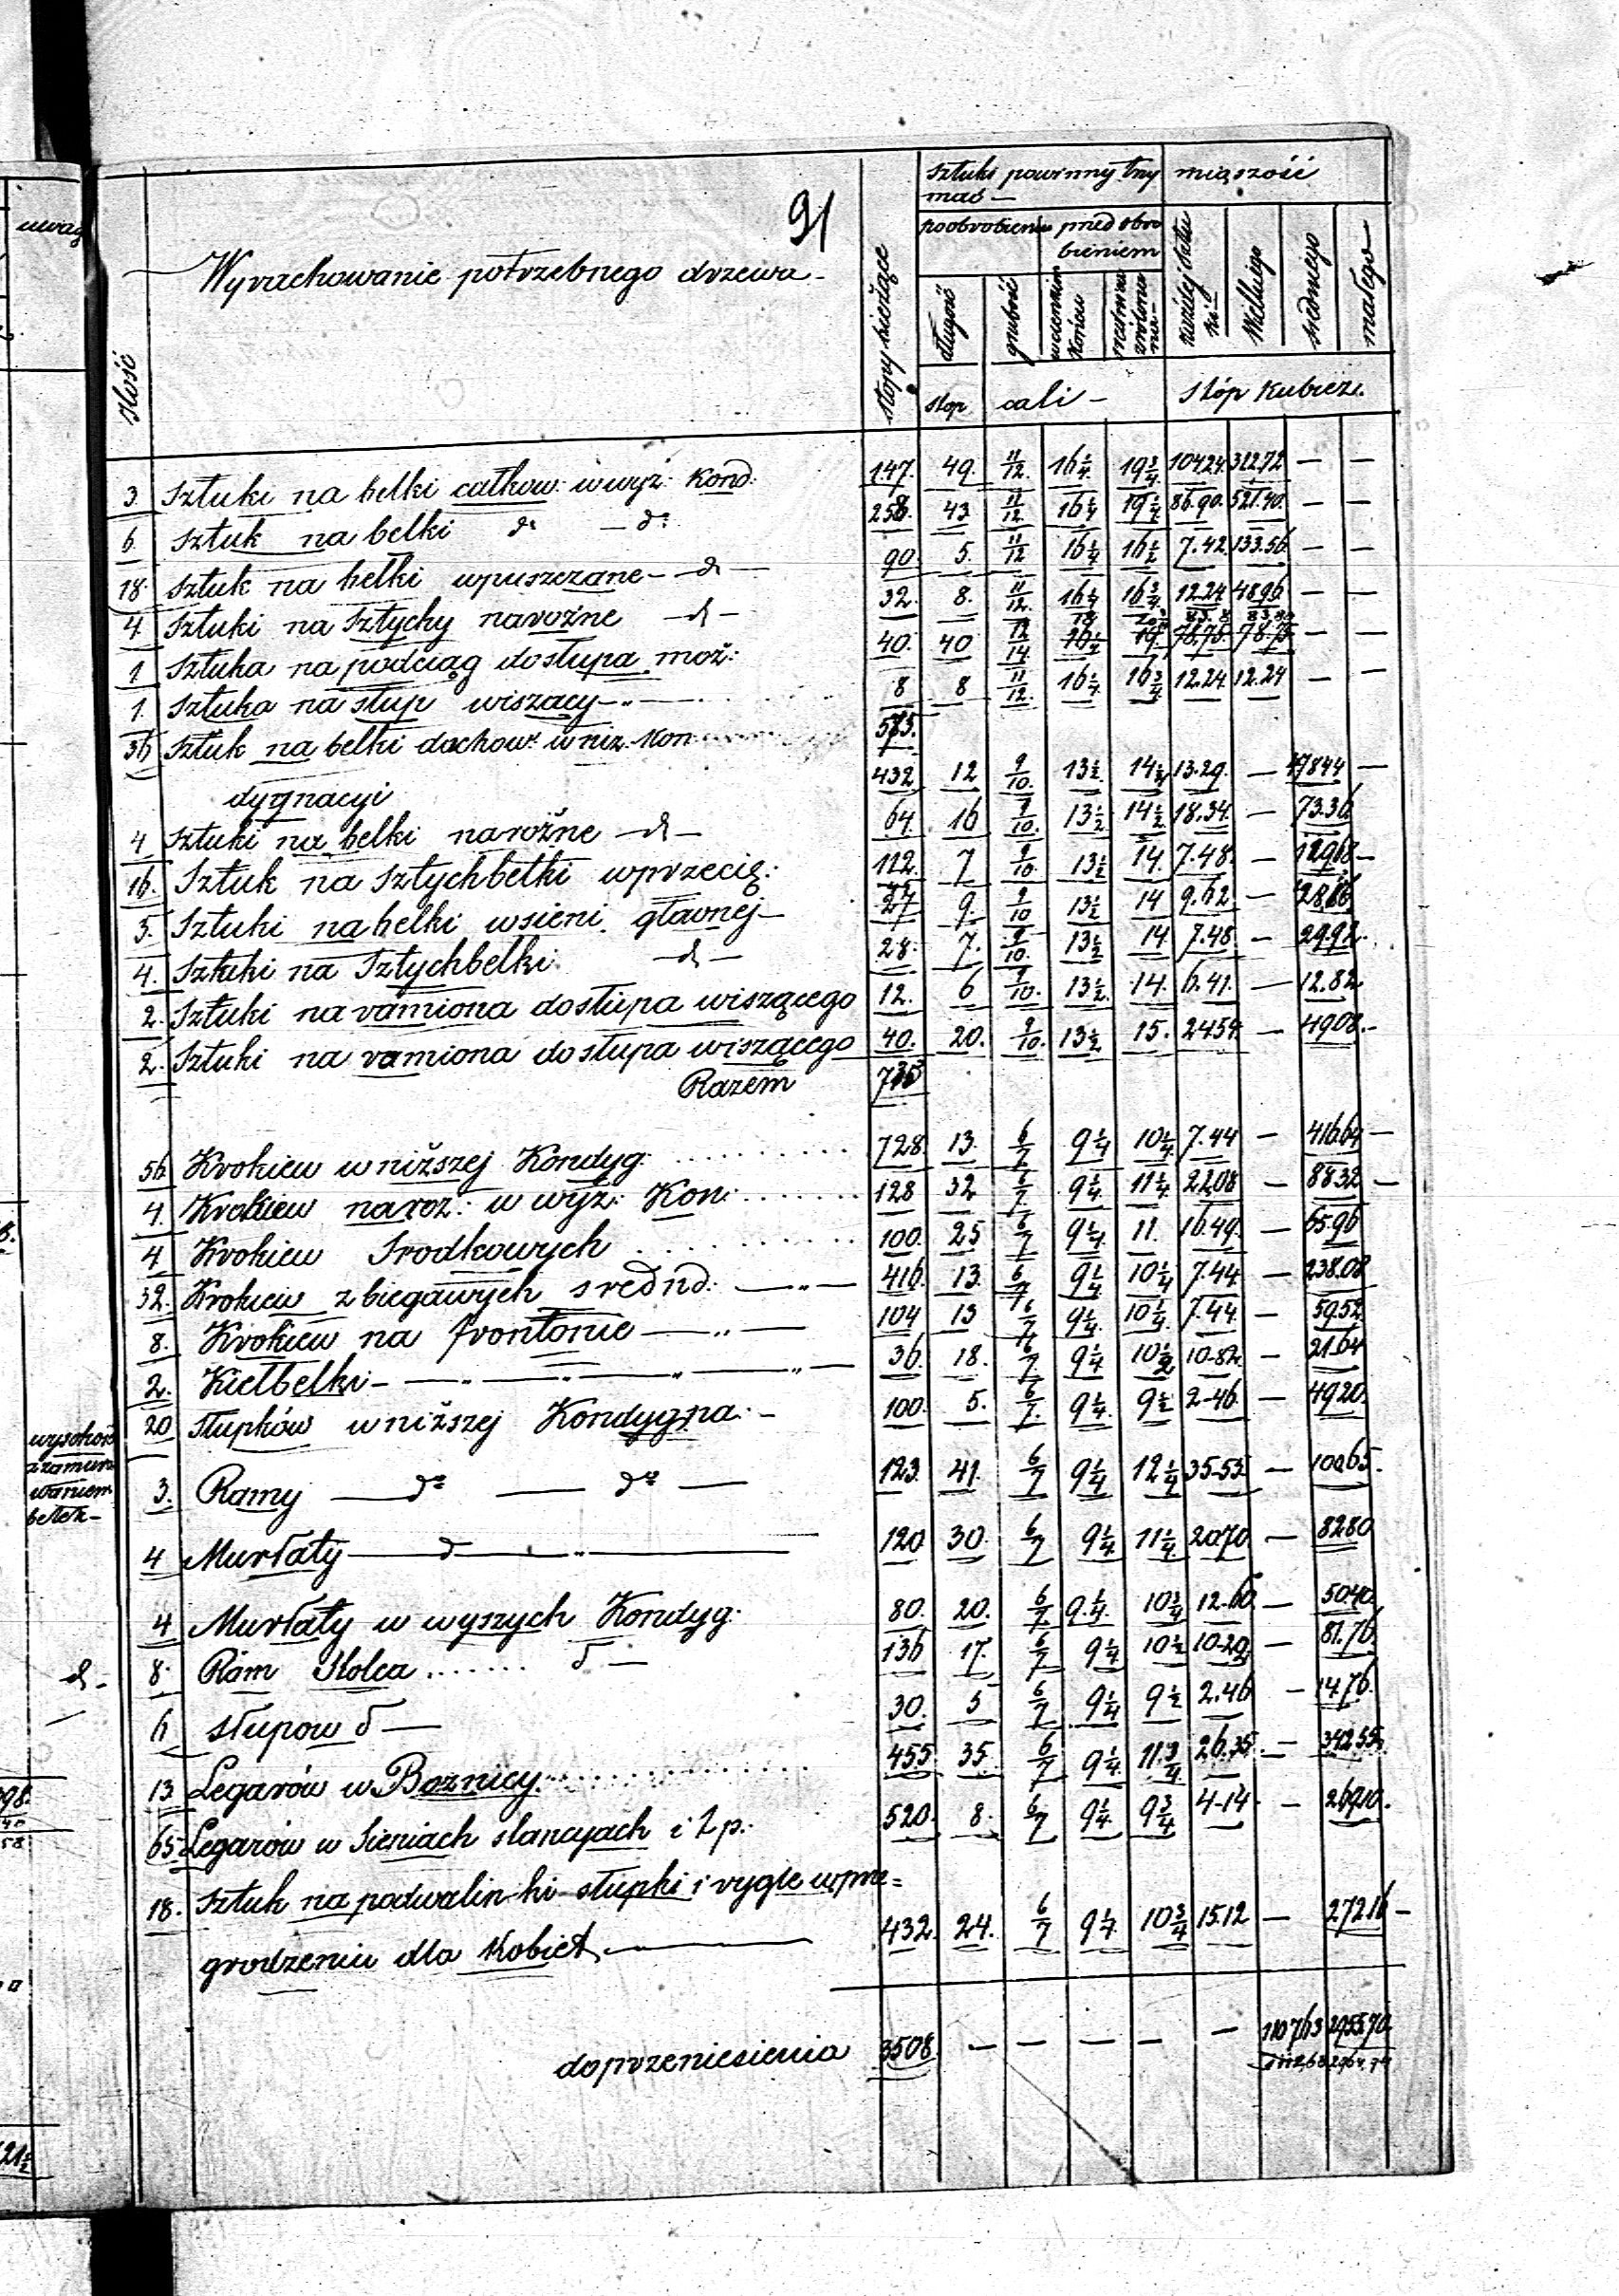 91
Wyrachowanie potrzebnego drzewa
Ilość
stopy bieżące
Sztuki powinny trzy miąższość
mać —
po obrobieniu przed obro
bieniem
długość
grubość
w cienkim Końcu
Każdej Sztu ki
Wielkiego
średniego
małego
stop cali — Stóp Kubicz.
3. Sztuki na belki całkow: w wyż: Kond: 147. 49. 11/12. 16 1/4 19 3/4 104.24. 312.72 — —
6. Sztuk na belki d° — d° 258. 43 11/12 16 1/4 19 1/4 86.90. 521.40. — —
18. Sztuk na belki wpuszczane — d° — 90. 5. 11/12 16 1/4 16 1/2 7.42 133.56 — —
4. Sztuki na Sztychy narożne — d° — 32. 8. 11/12. 16 1/4 16 3/4 12.24 48.96 — —
1. Sztuka na podciąg do słupa moż: 40. 40 12/14 — —
1. Sztuka na słup wiszący — 8 8 11/12. 16 1/4 16 3/4 12.24. 12.24 — —
575.
36 Sztuk na belki dachow: w niż. Kon
dygnacyi 432 12 9/10. 13 1/2 14 1/4 13.29. — 478.44 —
4 Sztuki na belki narożne — d° — 64. 16 9/10. 13 1/2 14 1/2 18.34. — 73.36
16. Sztuk na Sztychbelki w przecią: 112. 7 9/10. 13 1/2 14. 7.48. — 129.68 —
3. Sztuki na belki w sieni głównej — 27 9. 9/10 13 1/2 14 9.62 — 28.86
4. Sztuki na Sztychbelki — d° — 28. 7. 9/10. 13 1/2 14 7.48. — 29.92.
2. Sztuki na ramiona do słupa wiszącego 12. 6 9/10. 13 1/2. 14. 6.41. — 12.82
2. Sztuki na ramiona do słupa wiszącego 40. 20. 9/10. 13 1/2 15. 24.54. — 49.08. —
Razem 715
56 Krokiew w niższej Kondyg: 728. 13. 6/7 9 1/4 10 1/4 7.44 — 416.64 —
4. Krokiew naroż: w wyż: Kon: 128 32 6/7. 9 1/4. 11 1/4 22.08 — 88.32 —
4 Krokiew Srodkowych 100. 25 6/7 9 1/4 11. 16.49. — 65.96
32. Krokiew zbiegawych srednd: — 416. 13. 6/7 9 1/4 10 1/4 7.44 — 238.08
8. Krokiew na frontonie — 104 13 6/7 9 1/4. 10 1/4. 7.44. — 59.52
2. Kielbelki — 36. 18. 6/7. 9 1/4 10 1/2 10.82 — 21.64
20 Słupków w niższej Kondygna: — 100. 5. 6/7. 9 1/4. 9 1/2 2.46 — 49.20.
3. Ramy — d° — d° — 123. 41. 6/7 9 1/4 12 1/4 35.53 — 100.65.
4 Murłaty — d — 120 30. 6/7 9 1/4 11 1/4. 20.70. — 82.80
4 Murłaty w wyszych Kondyg: 80. 20. 6/7. 9 1/4. 10 3/4 12.60. — 50.40.
8. Ram Stolca d — 136 17. 6/7 9 1/4 10 1/2 10.29 — 81.76.
6 słupow d — 30. 5 6/7 9 1/4 9 1/2 2.46 — 14.76.
13 Legarów w Boznicy 455. 35. 6/7 9 1/4. 11 3/4 26.35. — 342.55.
65. Legarów w Sieniach stancyach i t p. 520. 8. 6/7 9 1/4 9 3/4 4.14. — 269.10.
18. Sztuk na podwalin-ki słupki i rygle w prze=
grodzeniu dla Kobiet — 432 24. 6/7 9 1/4. 10 3/4 15.12 — 272.16 —
do przeniesienia 3508. — — — — — 1107.63 2955.70
uwag
wysokość
z zamuro
waniem
belek —
d° —